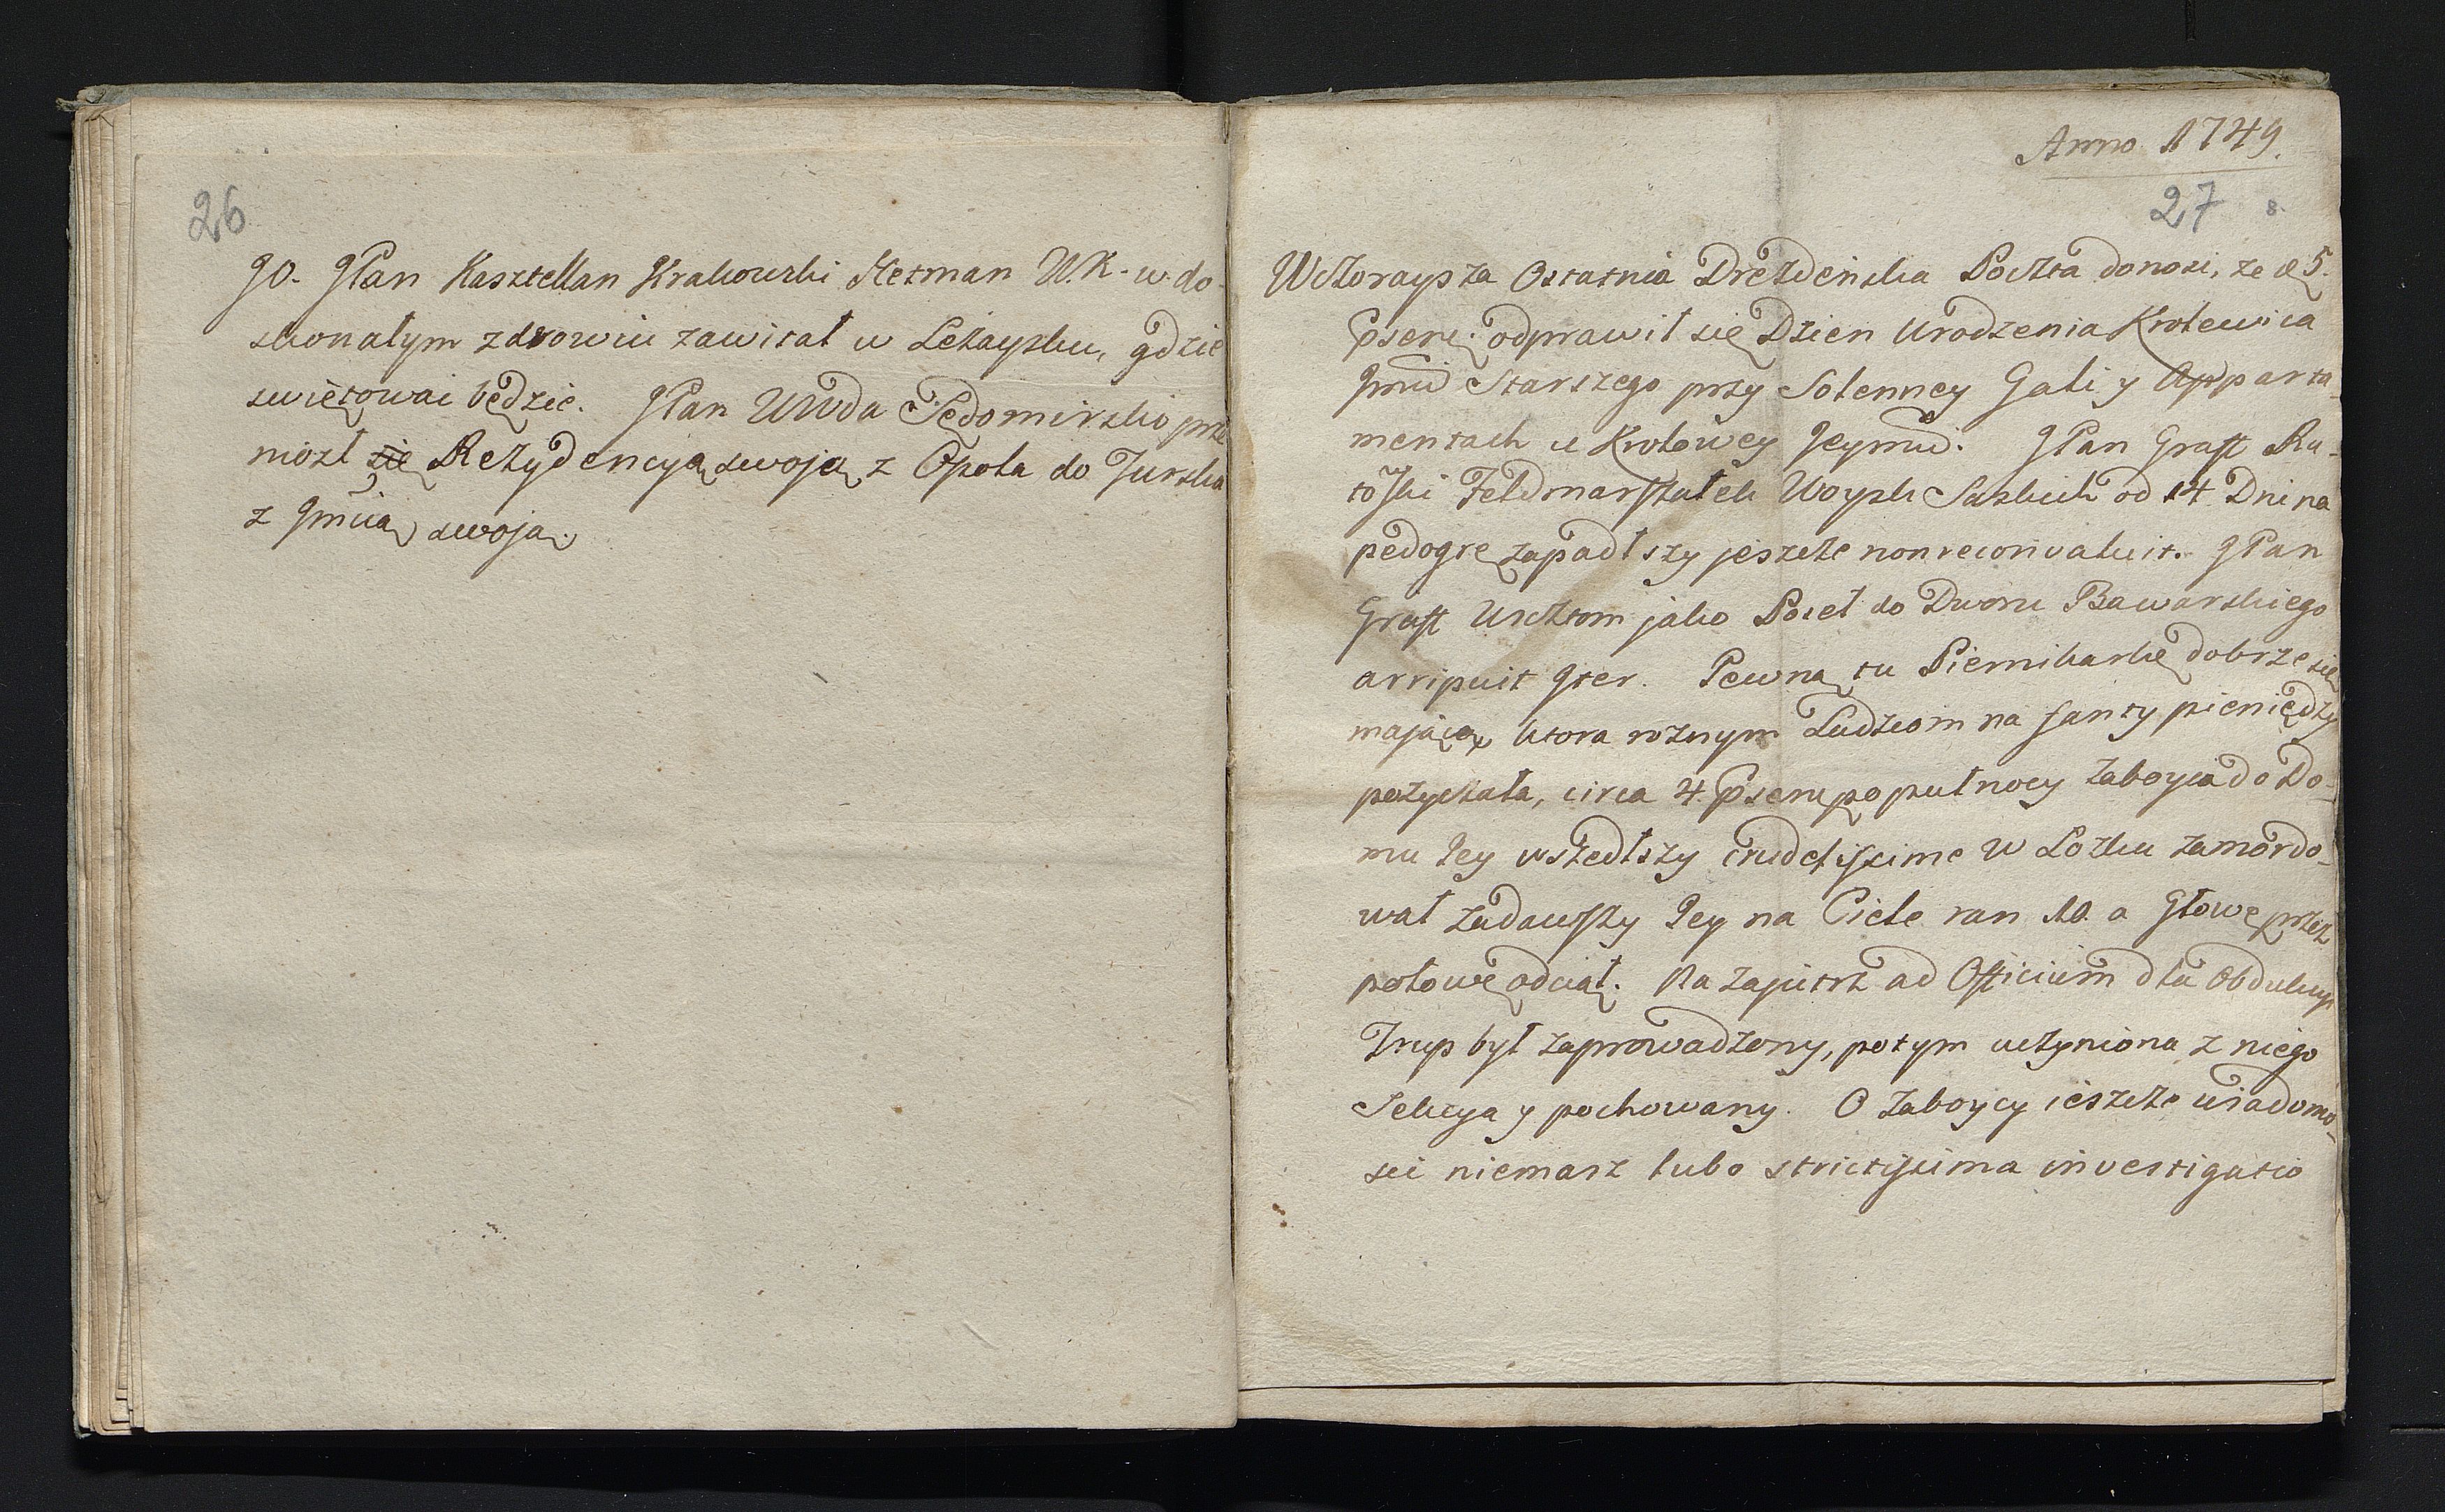 26
JO. JPan Kasztellan Krakowski Hetman W.K. w do-
skonałym zdrowiu zawitał w Leżaysku, gdzie
swiętowac będzie. JPan WWda Sędomirski prze
niozł się Rezydencyą swoją z Opola do Jurska
z Jmcią swoją.
Anno 1749.
27 8.
Wczoraysza Ostatnia Drezdeńska Poczta donosi, ze d 5.
psent. odprawił się Dzien Urodzenia Krolewica
Jmci Starszego przy Solenney Gali y Apparta-
mentach u Krolowey Jeymci. JPan Graff Ru-
towski Feldmarszałek Woysk Saskich od 14 Dni na
pedogrę zapadłszy jeszcze non reconvaluit. JPan
Graff Unctom jako Poseł do Dworu Bawarskiego
arripuit Iter. Pewną tu Piernikarkę dobrze się
mającą ktora roznym Ludziom na fanty pieniędzy
pozyczała, circa 4. psent. po pułnocy Zaboyca do Do-
mu Jey wszedłszy crudelissime w Lozku zamordo-
wał zadawszy Jey na Ciele ran 10. a Głowę przez
połowę odciął. Nazajutrz ad Officium dla Obdukcyi
Trup był zaprowadzony, potym uczyniona z niego
Sekcya y pochowany. O Zaboycy ieszcze wiadomo-
sci niemasz lubo strictissima investigatio